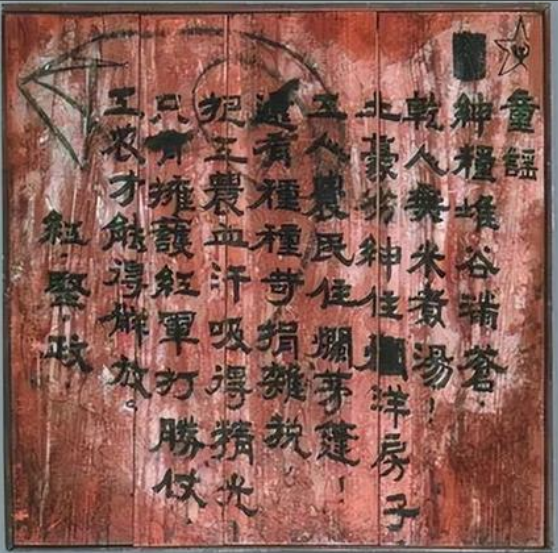 童謠
紳糧堆谷满蒼.
乾人無米煮湯!
土豪劣紳住洋房子
工人農民住爛茅篷!
還有種種苛捐雜税!
把工農血汗吸得精光
只有擁護紅軍打勝仗
工农才能得解放。
紅.堅政